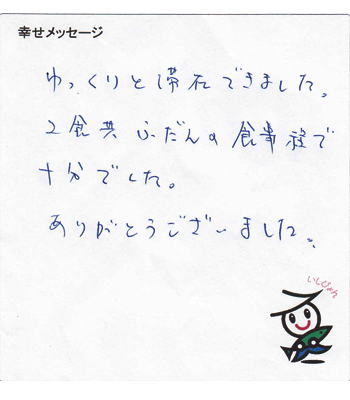 幸せメッセージ
ゆっくりと滞在できました。
2食共ふだんの食事程で
十分でした。
ありがとうございました。
いしぴょん